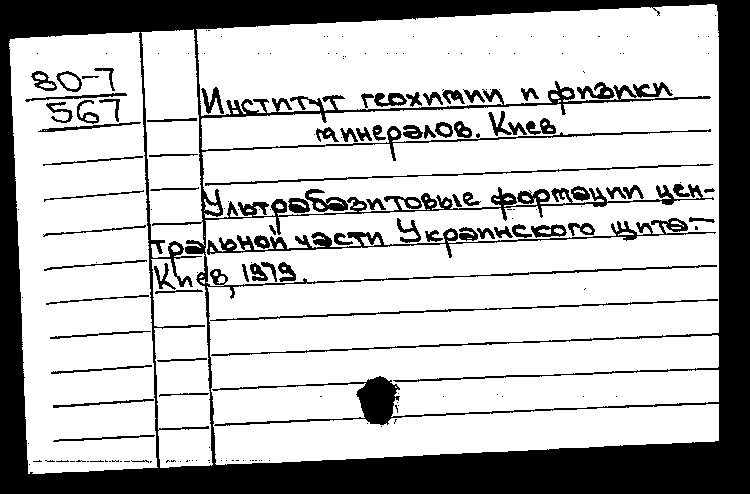 80-7
567
Институт геохимии и физики
минералов. Киев.
Ультрабазитовые формации цен-
тральной части Украинского щита.-
Киев, 1979.